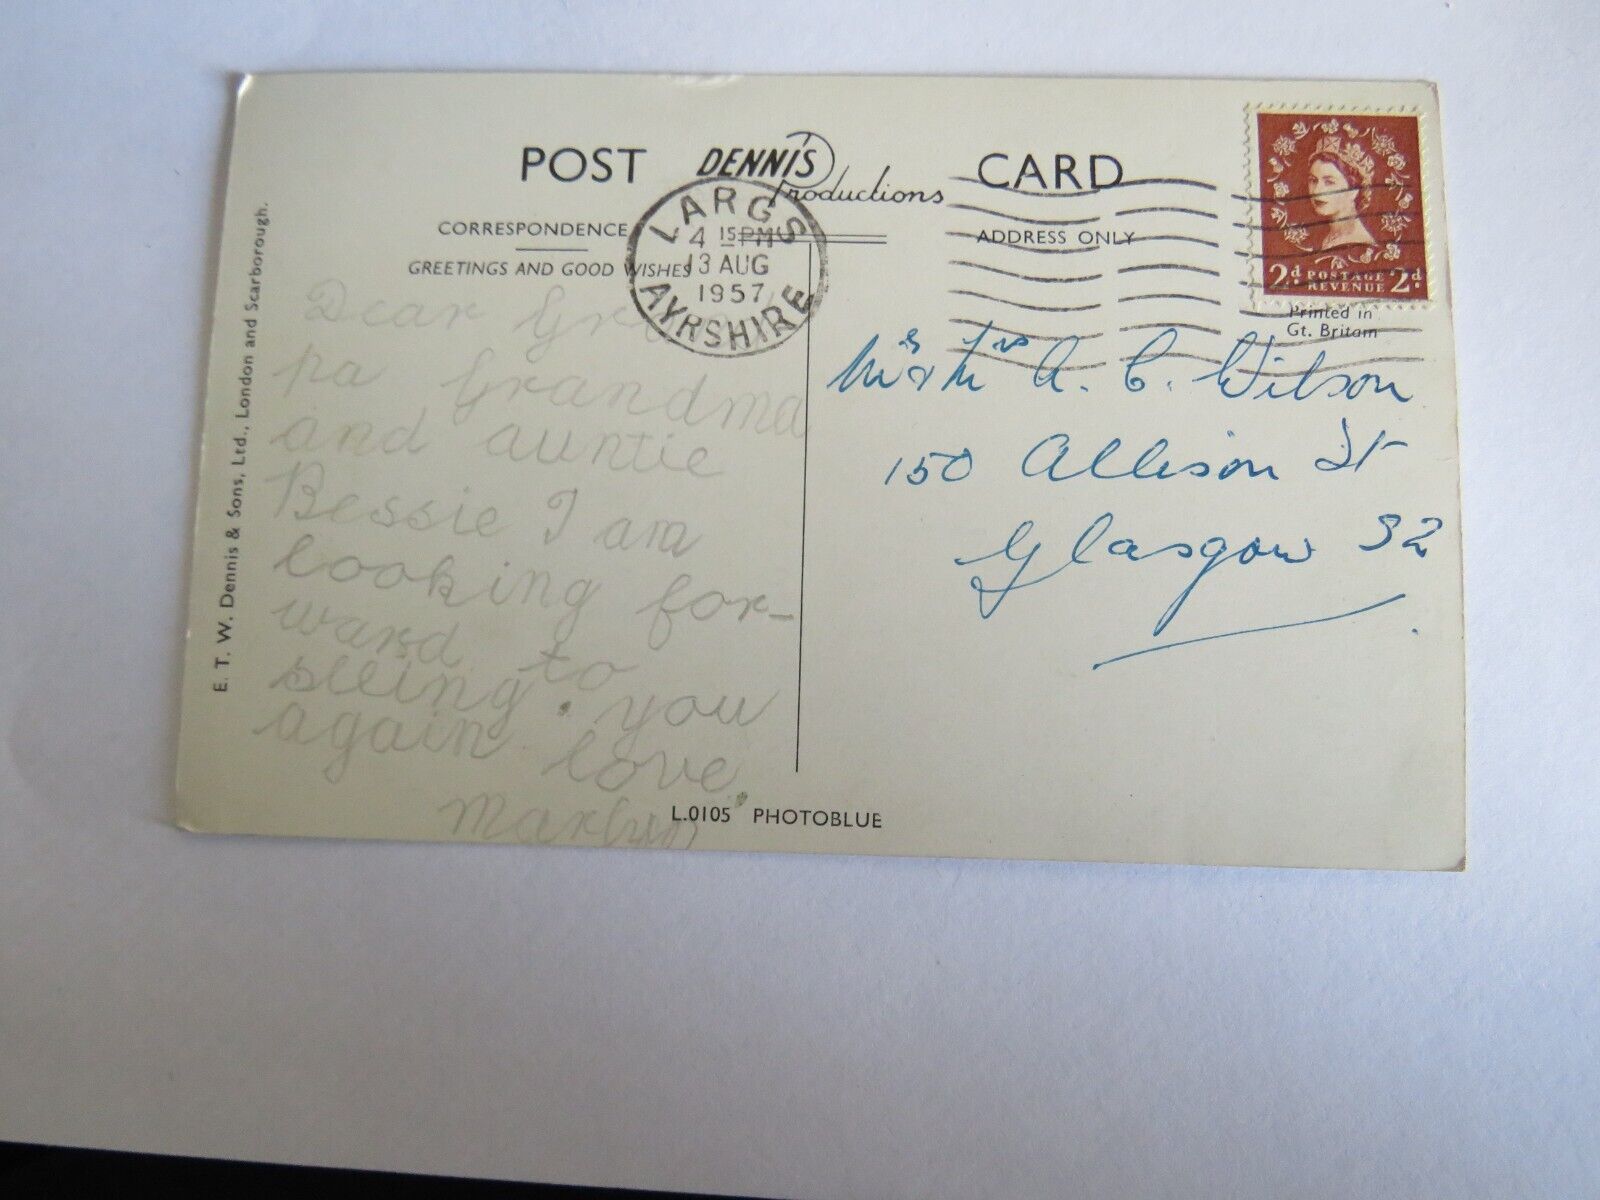 POST DENNIS Productions CARD
CORRESPONDENCE
GREETINGS AND GOOD WISHES
ADDRESS ONLY
LARGS
4 15 PM
13 AUG
1957
AYRSHIRE
2d POSTAGE REVENUE 2d
Printed in
Gt. Britain
E. T. W. Dennis & Sons, Ltd., London and Scarborough.
Dear
pa Grandma
and auntie
Bessie I am
looking for-
ward to
seeing you
again love
Marlyn
Mr & Mrs A. C. Wilson
150 Allison St
Glasgow S2
L.0105 PHOTOBLUE